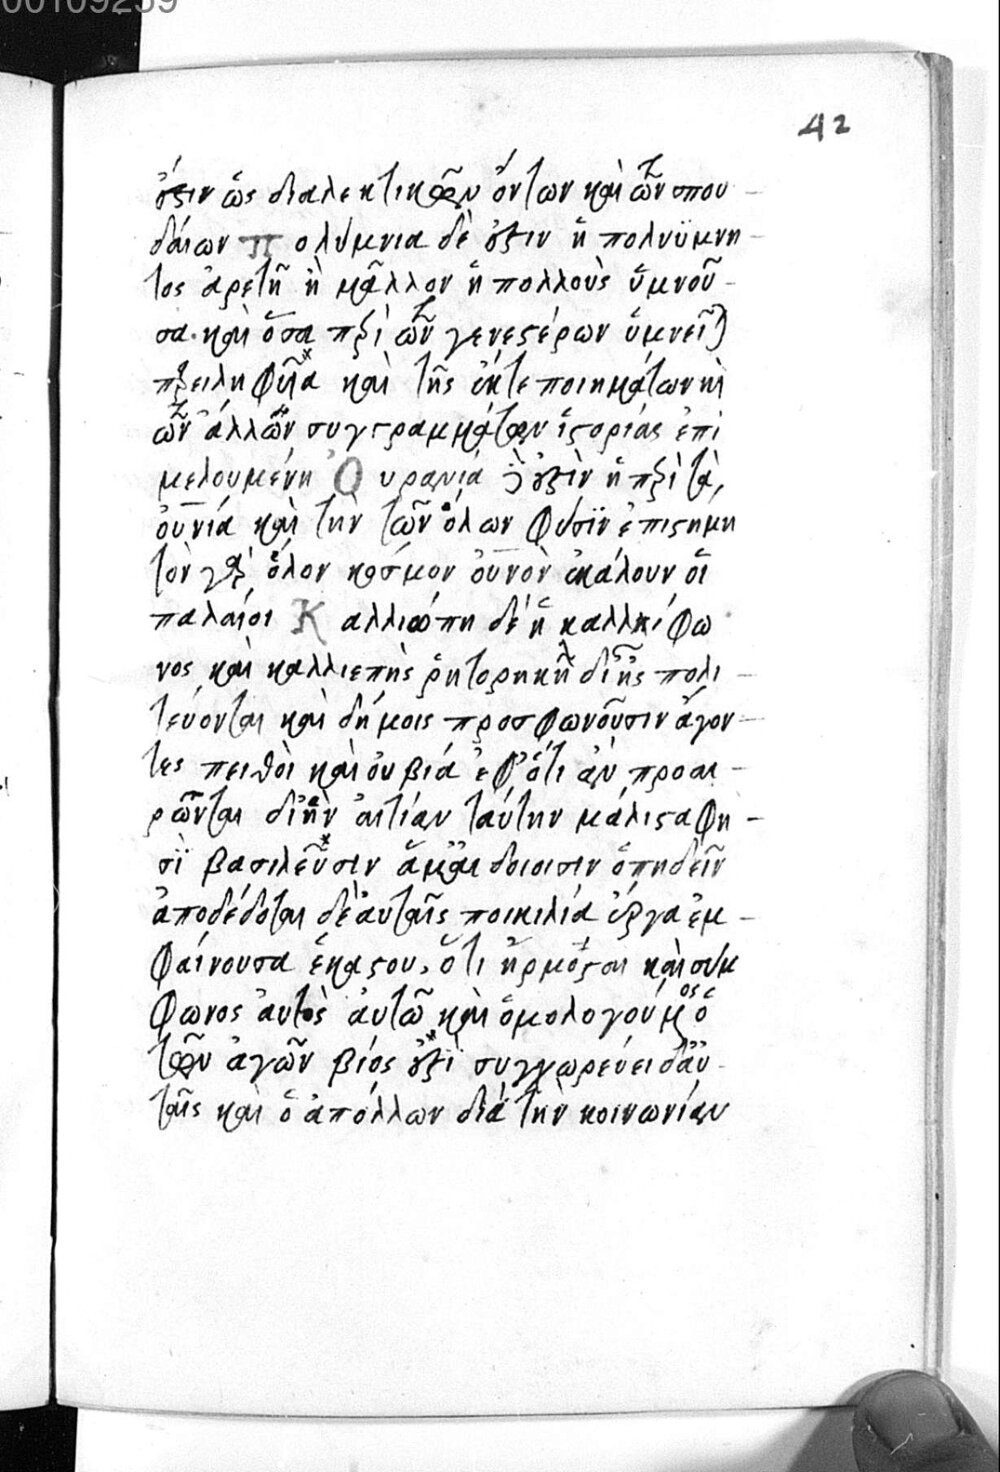 00109239
42
ἐστιν ὡς διαλεκτικῶν ὄντων καὶ τῶν σπου
δαίων Πολύμνια δέ ἐστιν ἡ πολυύμνη
τος ἀρετῆ ἢ μᾶλλον ἡ πολλοὺς ὑμνοῦ
σα. καὶ ὅσα περὶ τῶν γενεστέρων ὑμνεῖται
παρειληφυῖα καὶ τῆς ἔκτε ποιημάτων καὶ
τῶν ἄλλων συγγραμμάτων ἱστορίας ἐπι
μελουμένη Ουρανιά δέ ἐστὶν ἡ περὶ τὰ
οὐνιά καὶ τὴν τῶν ὅλων φύσιν ἐπιστημη
τὸν γὰρ ὅλον κόσμον οὐνὸν ἐκάλουν οἱ
παλαιοι Καλλιόπη δέ ἡ καλλίφω
νος καὶ καλλιεπὴς ῥητορηκὴ δι ἧς πολι
τεύονται καὶ δήμοις προσφωνοῦσιν ἄγον
τες πειθοὶ καὶ οὐ βιά ἐφ ὅτι ἀν προαι
ρῶνται δι ἣν αἰτίαν ταύτην μάλιστα φη
σὶ βασιλεῦσιν ἅμ αἰδοιοισιν ὀπηδεῖν
ἀποδέδοται δὲ αὐταῖς ποικιλιά ἔργα ἐμ
φαίνουσα ἑκάστου, ὅτι ἥρμοσται καὶ σύμ
φωνος ἀυτὸς ἀυτῶ καὶ ὁμολογούμος ὁ
τῶν ἀγαθῶν βιός ἐστι συγχωρεύει δ αὐ
ταῖς καὶ ὁ ἀπόλλων διά τὴν κοινωνίαν